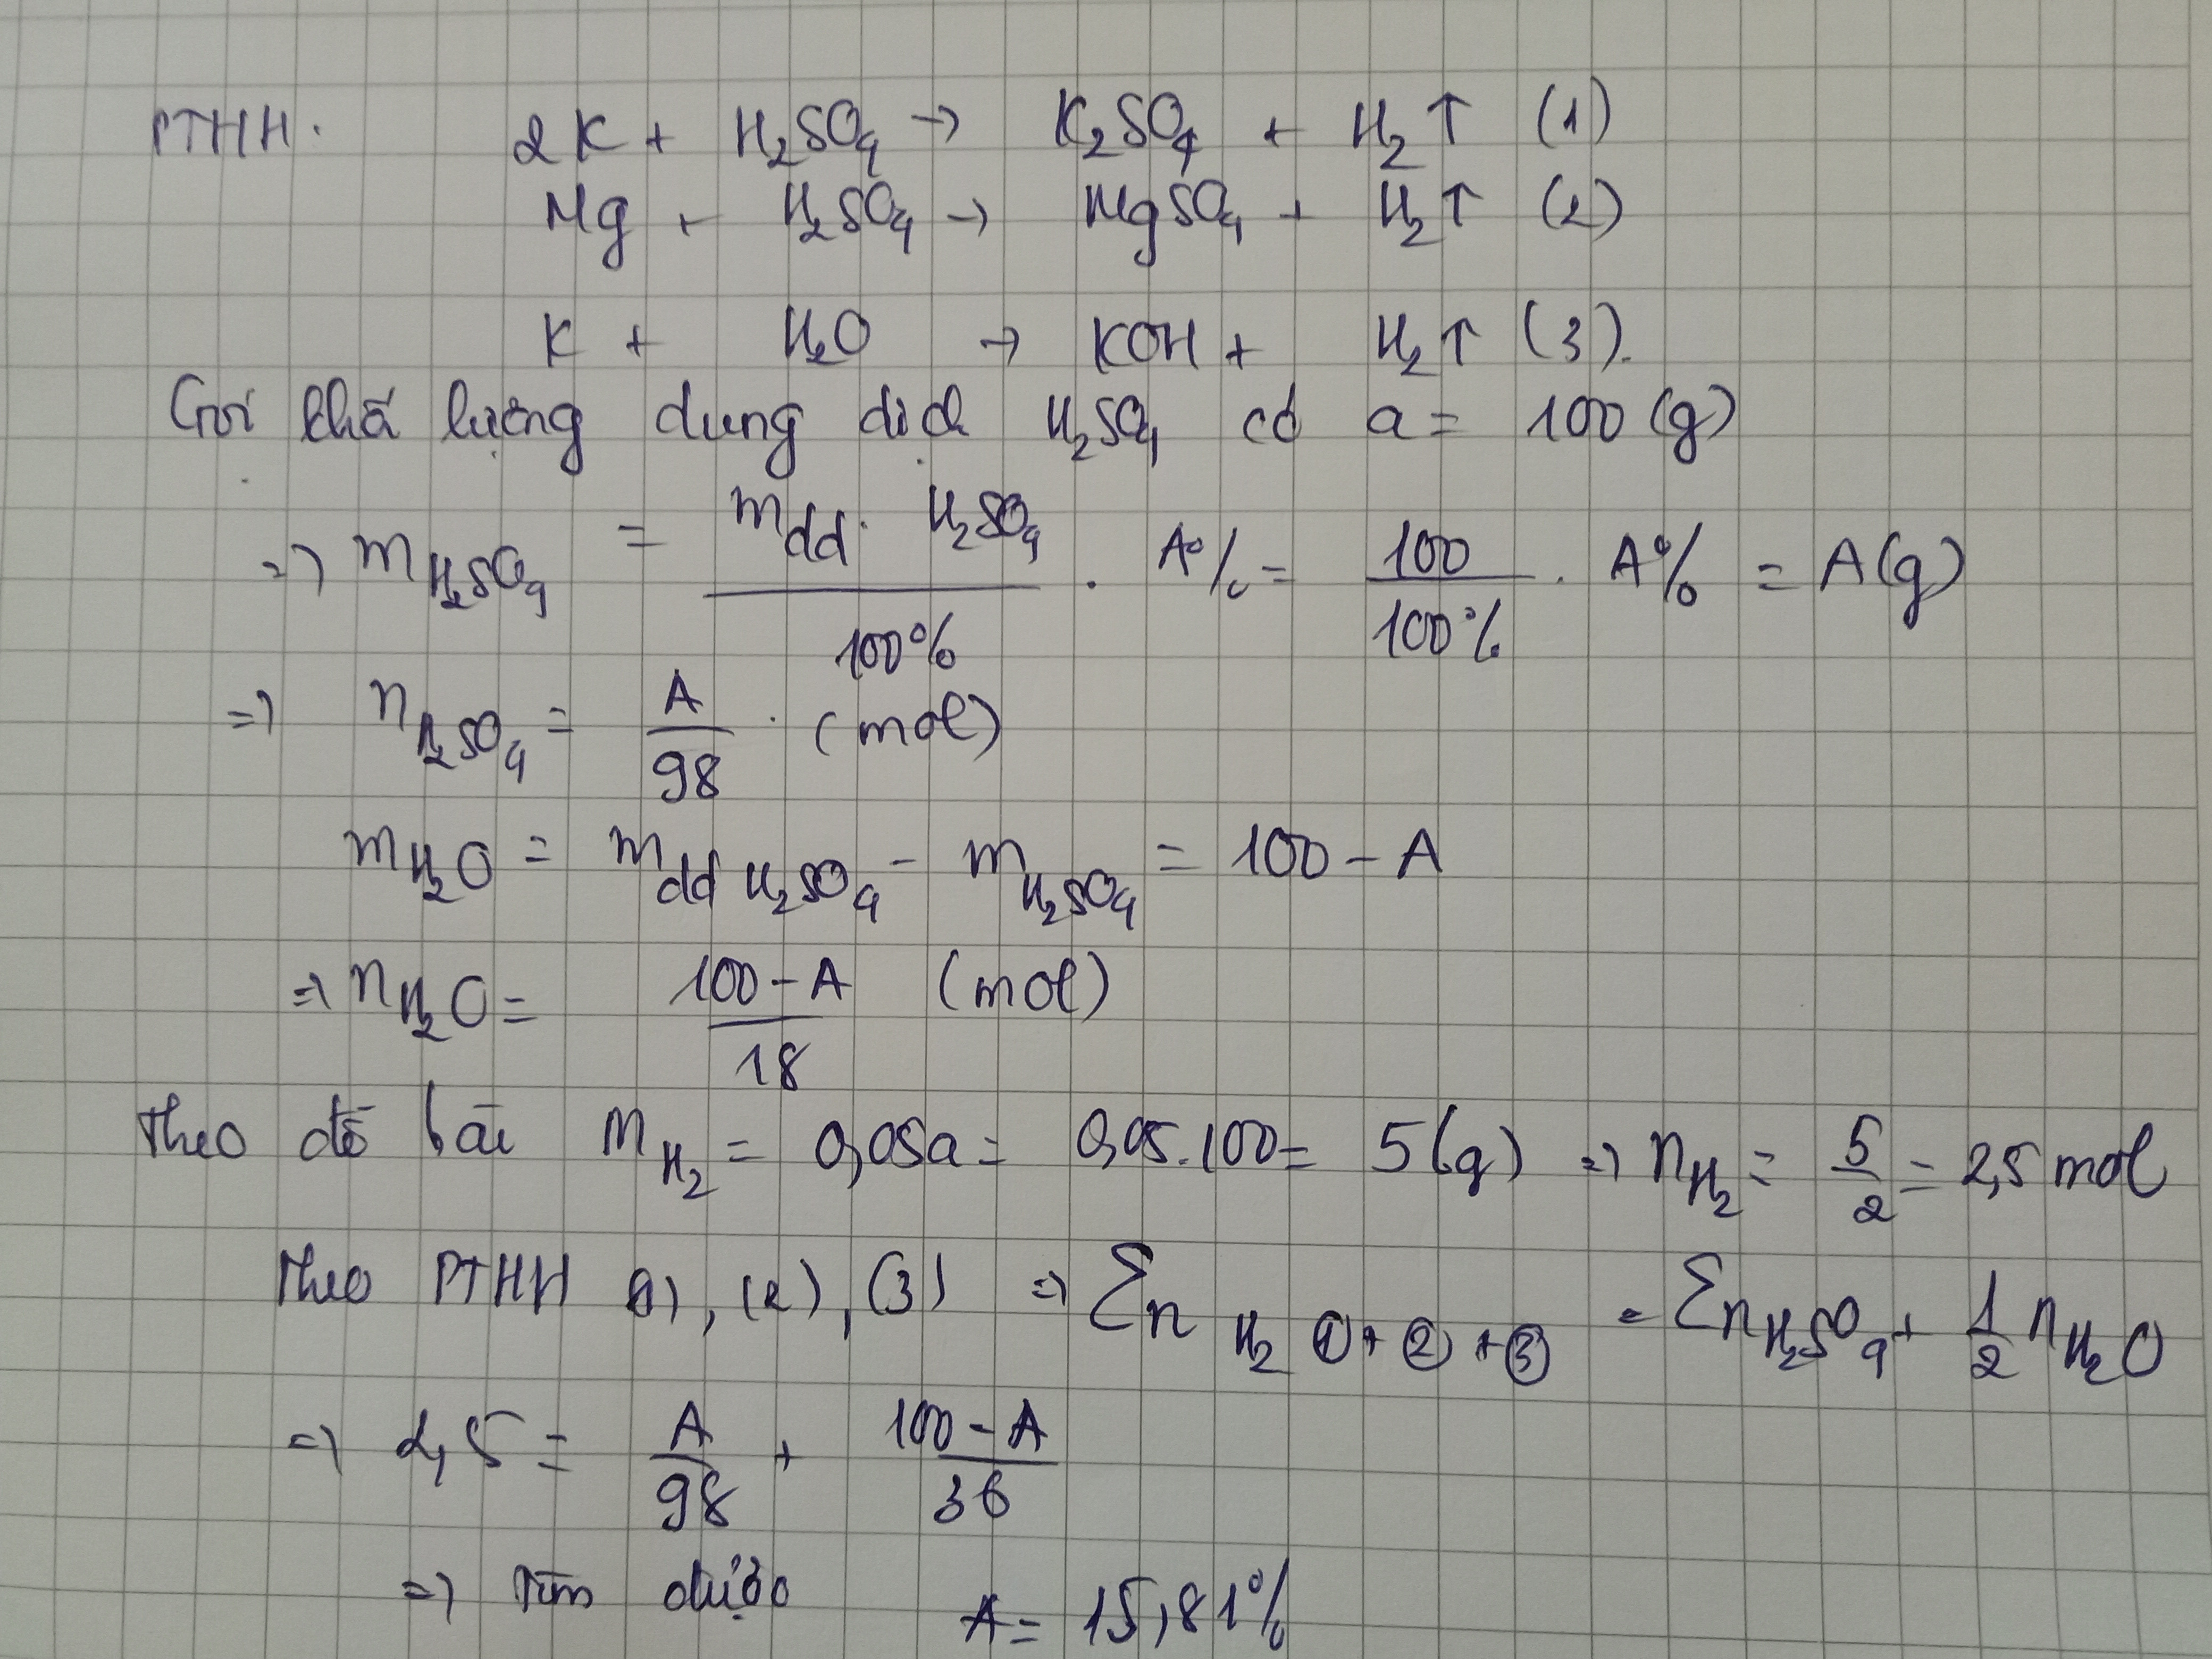 PTHH. 2K + H₂SO₄ → K₂SO₄ + H₂↑ (1)
Mg + H₂SO₄ → MgSO₄ + H₂↑ (2)
K + H₂O → KOH + H₂↑ (3).
Gọi khố lượng dung dịch H₂SO₄ có a = 100 (g)
=> m H₂SO₄ = mdd. H₂SO₄ / 100% . A% = 100 / 100% . A% = A(g)
=> n H₂SO₄ = A / 98 . (mol)
m H₂O = m dd H₂SO₄ - m H₂SO₄ = 100 - A
=> n H₂O = 100 - A / 18 (mol)
Theo đề bài m H₂ = 0,05a = 0,05.100 = 5(g) => n H₂ = 5/2 = 2,5 mol
Theo PTHH (1), (2), (3) => Σn H₂ ①+②+③ = Σn H₂SO₄ + 1/2 n H₂O
=> 2,5 = A / 98 + 100 - A / 36
=> Tìm được A = 15,81%